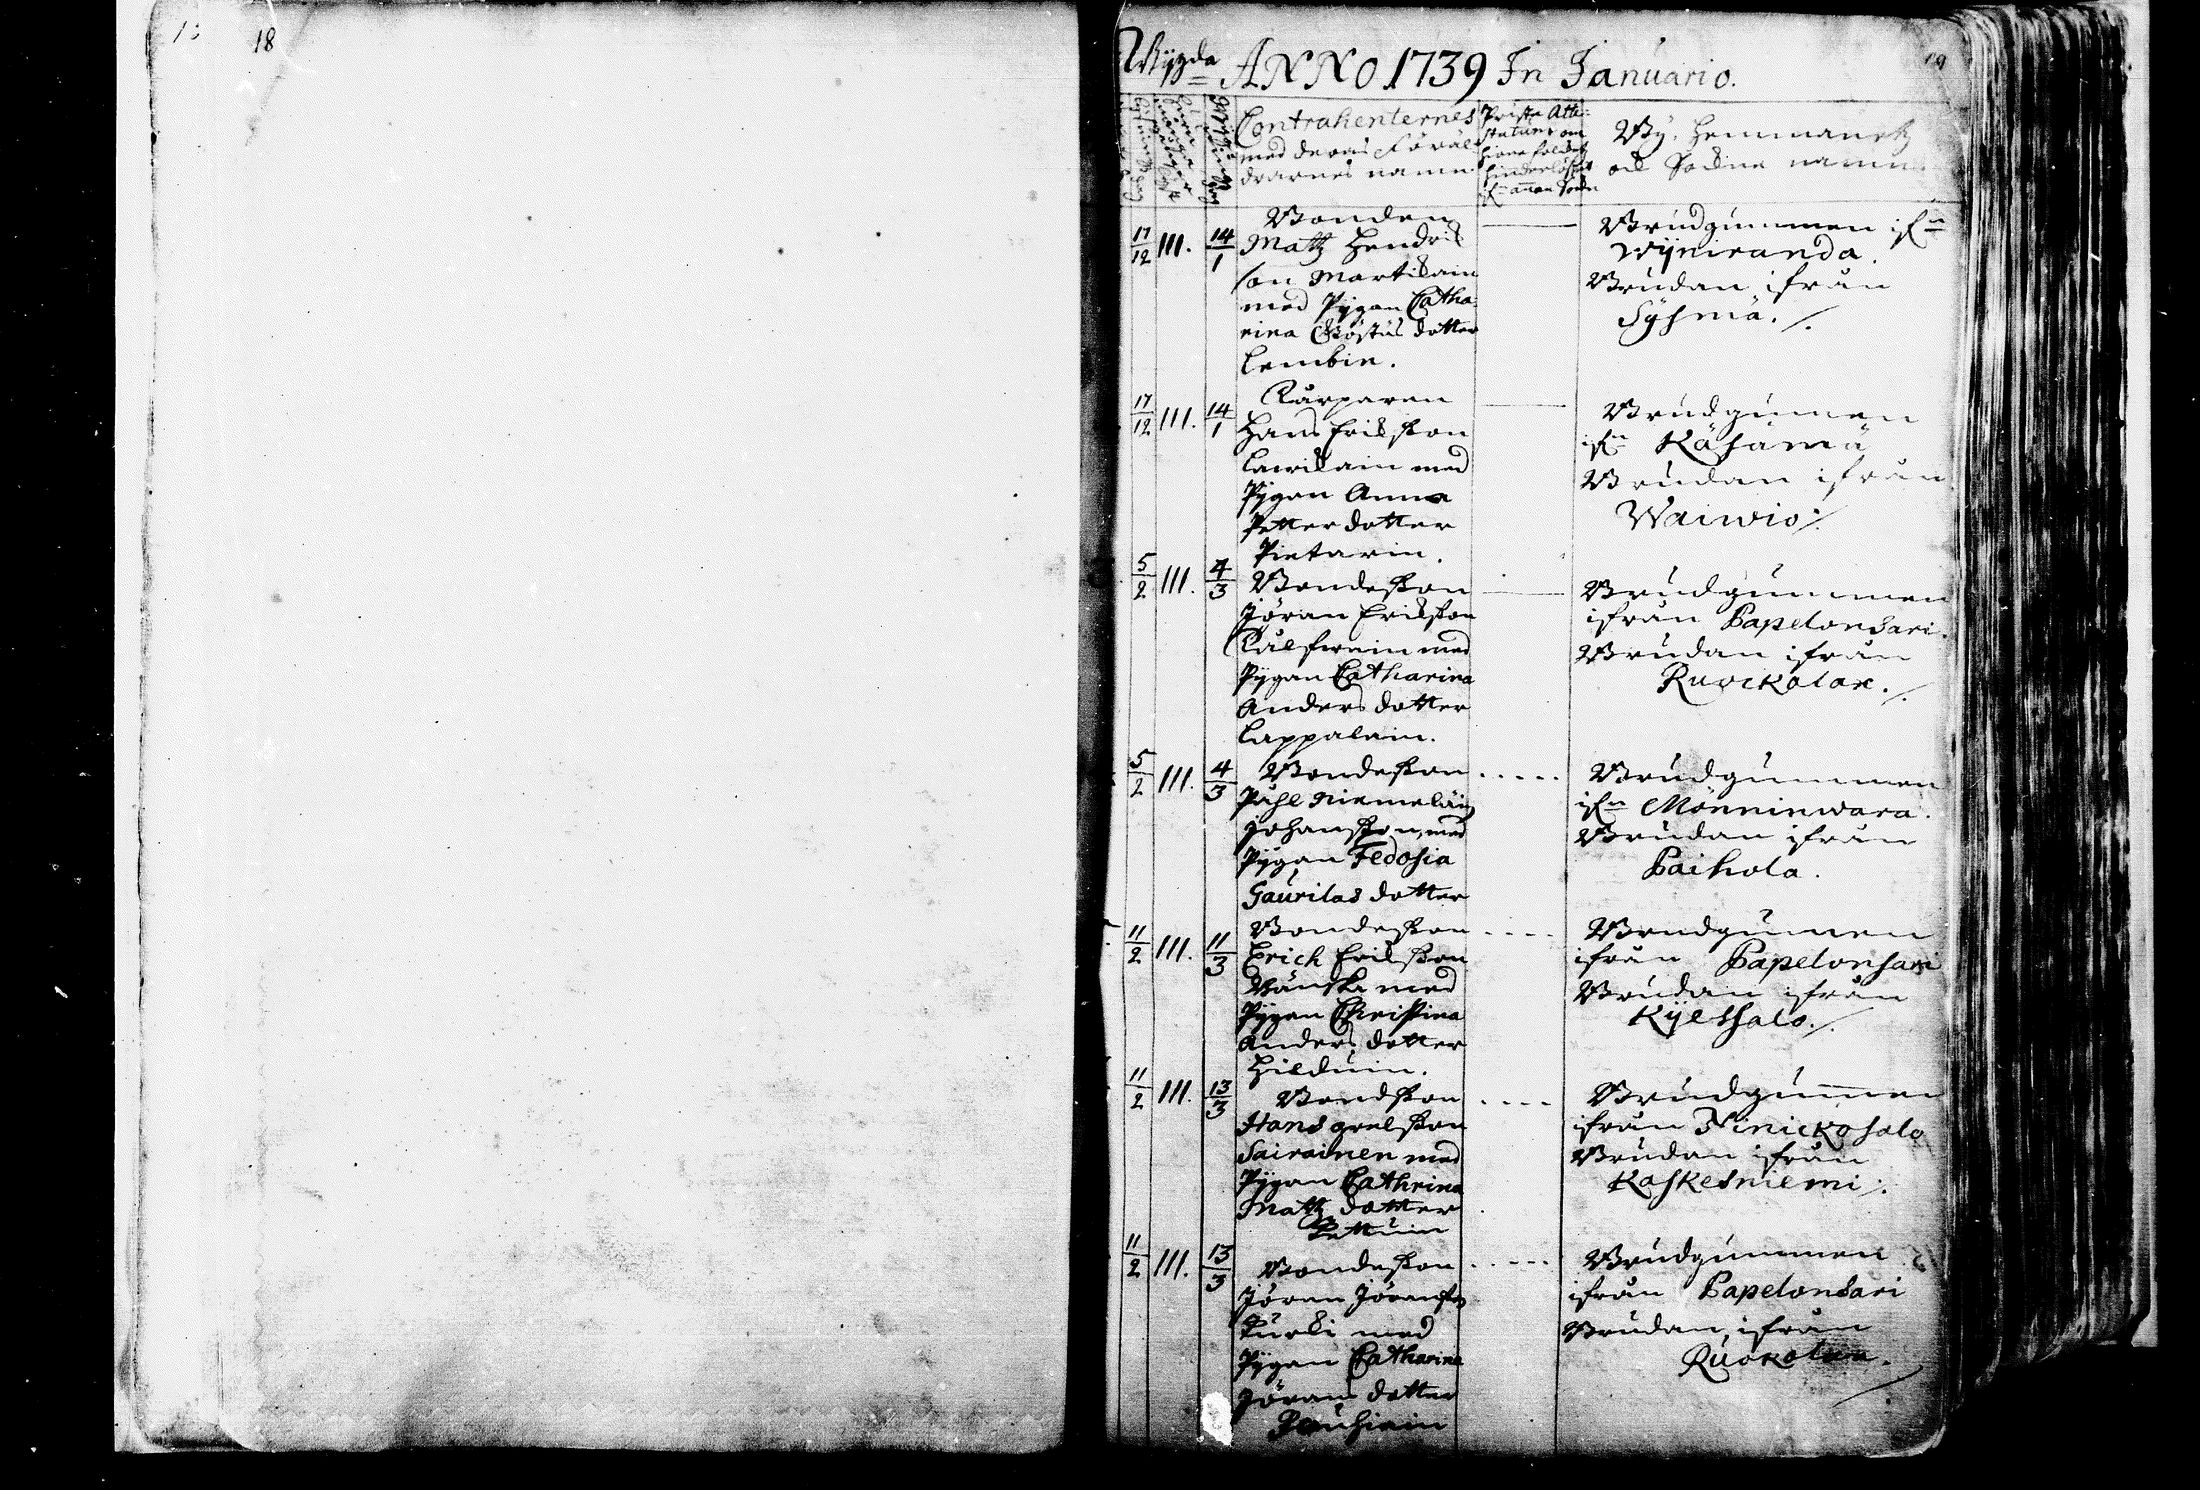 18
19
Wygda ANNO 1739 In Januario.
Contrahenternes
med deras Föräl-
drarnes namn
Prästa Atte-
statum om
Bÿ, Hemmanetz
och Sockne namn
17/12 III. 14/1
Bonden
Matz Hendrich
son Martikain
med Pÿgan Catha-
rina Göstas dotter
Lembin.
Brudgummen ifrn
Wijniranda.
Brudan ifrån
Sÿsmä./.
17/12 III. 14/1
Karparen
Hans Erichsson
Laurikain med
Pÿgan Anna
Petter dotter
Pietarin.
Brudgumen
ifrn Käsämä
Brudan ifrån
Waiwio./.
5/2 III. 4/3
Bondeson
Jöran Erichsson
med
Pÿgan Catharina
Anders dotter
Lappalain.
Brudgummen
ifrån Papelonsari.
Brudan ifrån
Ruockolax./.
5/2 III. 4/3
Bondeson
Påhl Niemeläin
Johansson, med
Pÿgan Fedosia
Gaurilas dotter
Brudgummen
ifrn Mönninwara.
Brudan ifrån
Paihola.
11/2 III. 11/3
Bondeson
Erich Erichsson
Vänskä med
Pÿgan Christina
Anders dotter
Hilduin.
Brudgumen
ifrån Papelonsari
Brudan ifrån
Kÿlssalo./.
11/2 III. 13/3
Bondson
Hans
Sairainen med
Pÿgan Cathrina
Matz dotter
Pettuin
Brudgummen
ifrån Ninickosalo
Brudan ifrån
Kaskesniemi./.
11/2 III. 13/3
Bondeson
Jöran Jöransson
Turki med
Pÿgan Catharina
Jörans dotter
Brudgummen
ifrån Papelonsari
Brudan, ifrån
Ruokolax.